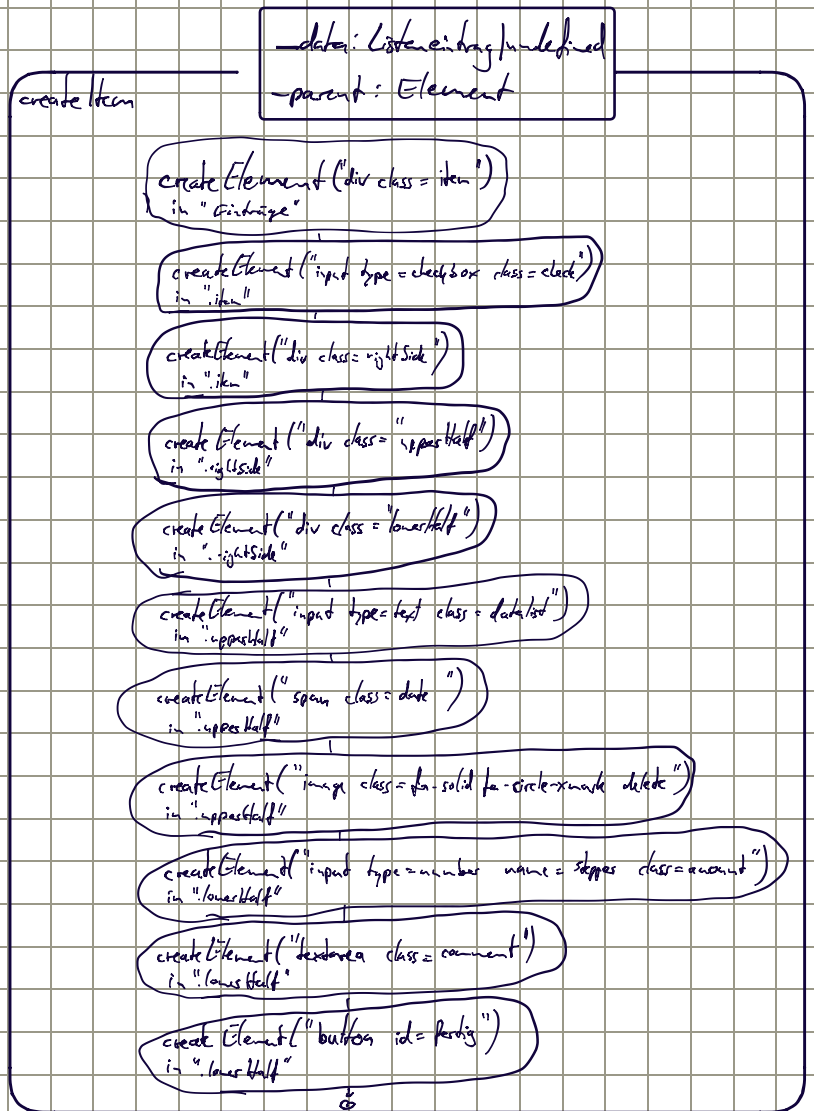 _data: Listeneintrag/undefined
-parent: Element
createItem
createElement("div class = item")
in "Einträge"
createElement("input type = checkbox class = check")
in ".item"
createElement("div class = rightSide")
in ".item"
createElement("div class = "upperHalf")
in ".rightSide"
createElement("div class = "lowerHalf")
in ".rightSide"
createElement("input type = text class = datalist")
in ".upperHalf"
createElement("span class = date ")
in ".upperHalf"
createElement("image class = fa-solid fa-circle-xmark delete")
in ".upperHalf"
createElement("input type = number name = stepper class = amount")
in ".lowerHalf"
createElement("textarea class = comment")
in ".lowerHalf"
createElement("button id = fertig")
in ".lowerHalf"